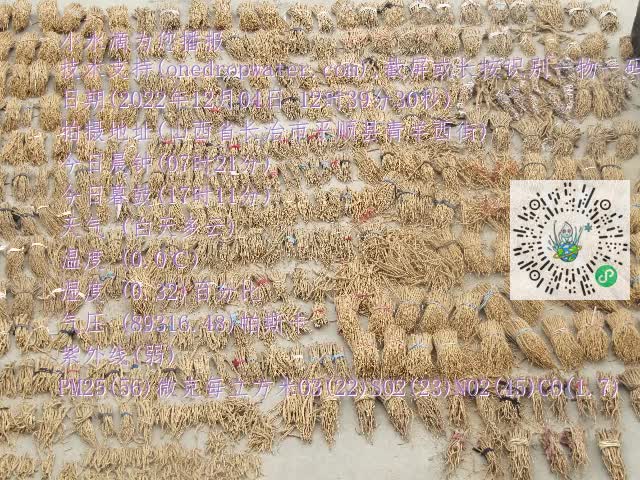 小水滴为您播报
技术支持(onedropwater.com) 截屏或长按识别一物一码
日期(2022年12月01日 12时39分30秒)
拍摄地址(山西省长治市平顺县青羊西街)
今日晨钟(07时21分)
今日暮鼓(17时11分)
天气 (白天多云)
温度 (0.0℃)
湿度 (0.32)百分比
气压 (89316.48)帕斯卡
紫外线(弱)
PM25(56)微克每立方米O3(22)SO2(23)NO2(45)CO(1.7)